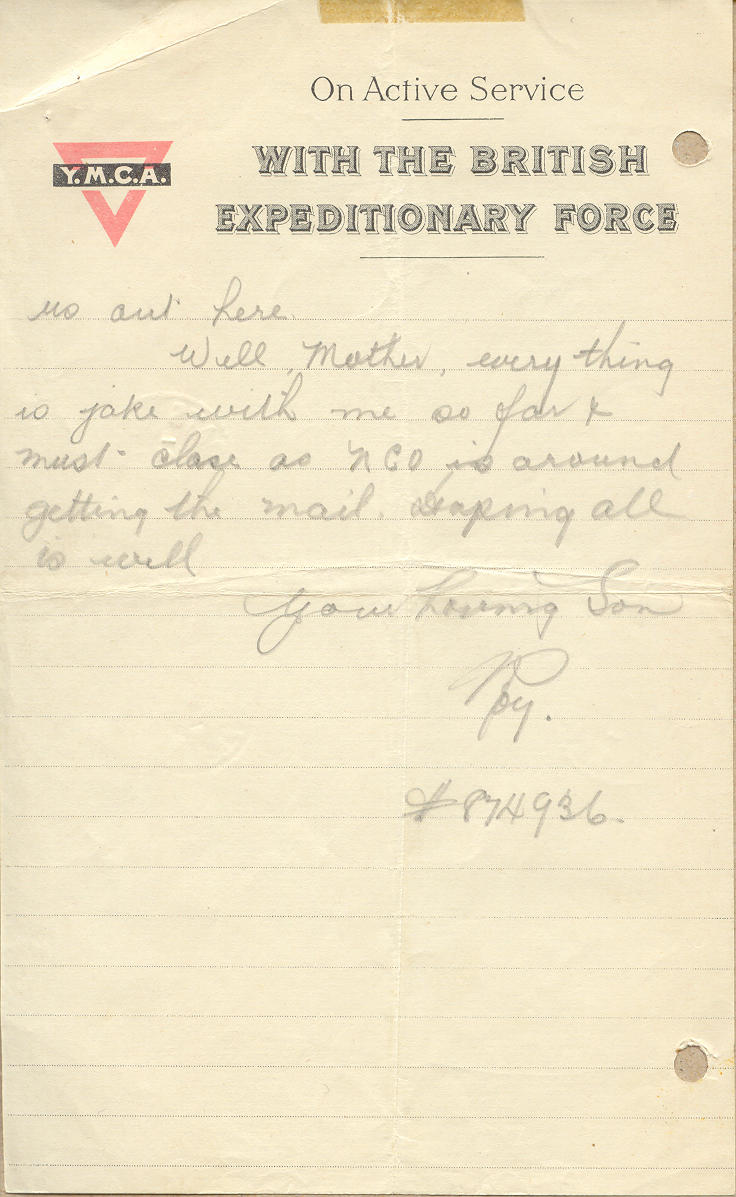 On Active Service
Y.M.C.A.
WITH THE BRITISH
EXPEDITIONARY FORCE
us out here.
Well, Mother, everything
is jake with me so far &
must close as NCO is around
getting the mail. Hoping all
is well
Your Loving Son
Roy.
#874936.